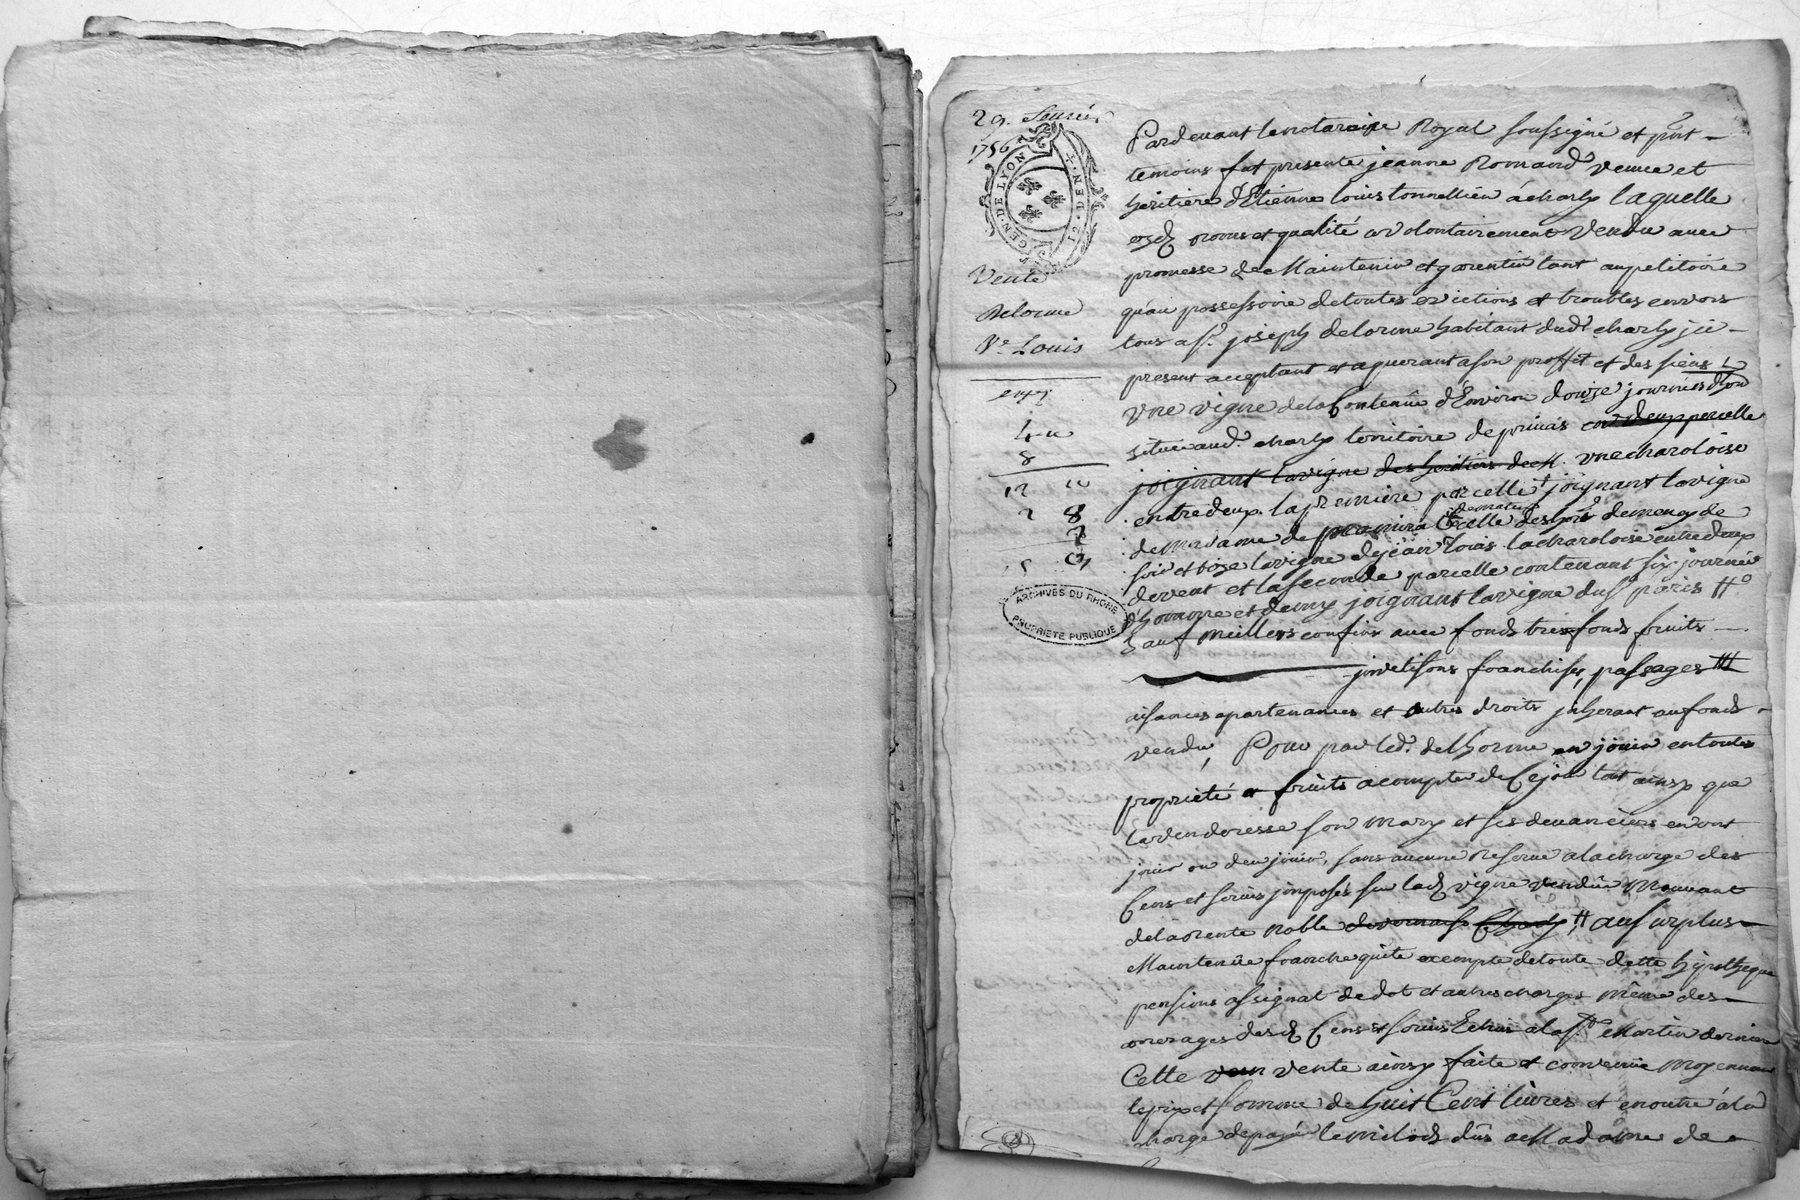 29. Janvier
1756
GEN. DE LYON
Vente
Delorme
Ve Louis
ARCHIVES DU RHONE
PROPRIETE PUBLIQUE
Pardevant le notaire Royal soussigné et
temoins fut presente jeanne Romand veuve et
heritiere d'Etienne Louis tonnellier à charly laquelle
noms et qualité a volontairement vendu avec
promesse de Maintenir et garentir tant au petitoire
qu'au possessoire de toutes evictions et troubles envers
tous a sr. joseph delorme habitant dudt charly ici
present acceptant et aquerant a son proffit et des siens
une vigne de la Contenüe d'Environ douze journées
située aud. charly territoire de
joignant la vigne des heritiers de M. une charoloise
entredeux. la premiere parcelle joignant la vigne
de madame de
soir et bize la vigne de jean Louis la charoloise entredeux
de vent et la seconde parcelle contenant six journée
d'homme et demy joignant la vigne du sr paris
sauf meilleurs confins avec fonds tresfonds fruits
franchises, passages
aisances apartenances et autres droits jnherant au fonds
vendu, Pour par led. delhorme en jouir en toutes
propriété et fruits a compter de Ce jour tout ainsy que
la venderesse son mary et ses devanciers en ont
jouir ou deu jouir, sans aucune Reserve a la charge des
Cens et servis jmposés sur lad vigne vendüe Mouvant
de la rente noble au surplus
Maintenüe franche quitte exempte de toute dette hÿpotheque
pensions assignat de dot et autres charges même des
arrerages desd Cens et servis Echus a la st Martin derniere
Cette vente ainsy faite et convenüe Moyennant
le prix et somme de huit Cent livres et en outre à la
charge de payer le milods dûs a Madame de